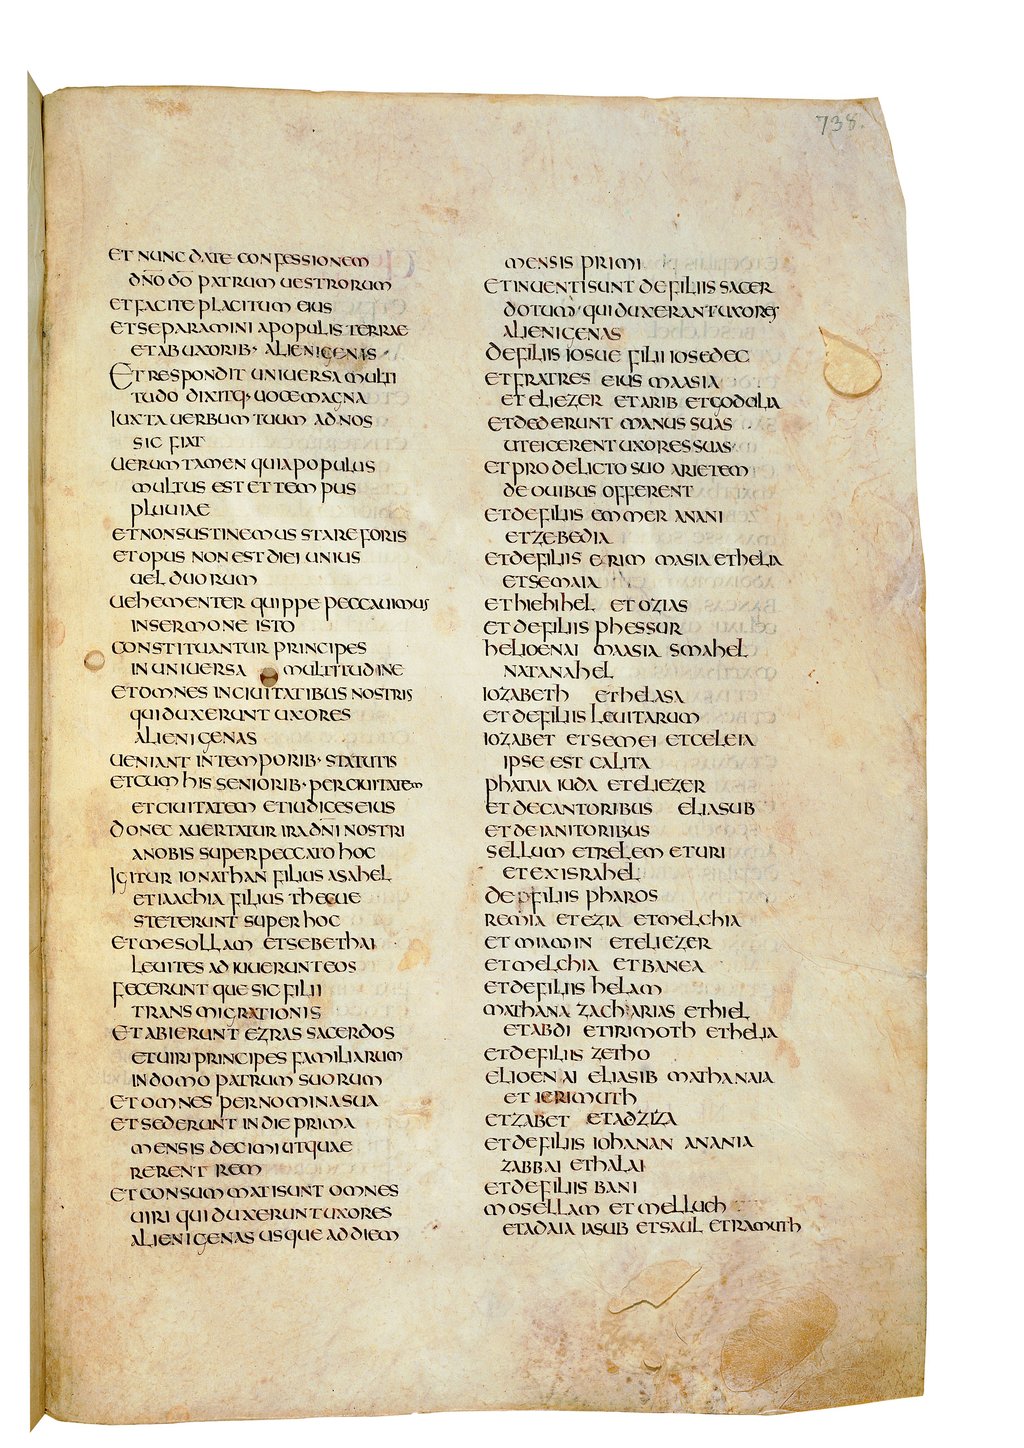 738.
ET NUNC DATE CONFESSIONEM
DÑO DO PATRUM UESTRORUM
ET FACITE PLACITUM EIUS
ET SEPARAMINI A POPULIS TERRAE
ET AB UXORIB· ALIENIGENIS·
ET RESPONDIT UNIUERSA MULTI
TUDO DIXITQ· UOCE MAGNA
IUXTA UERBUM TUUM AD NOS
SIC FIAT
UERUM TAMEN QUIA POPULUS
MULTUS EST ET TEMPUS
PLUUIAE
ET NON SUSTINEMUS STARE FORIS
ET OPUS NON EST DIEI UNIUS
UEL DUORUM
UEHEMENTER QUIPPE PECCAUIMUS
IN SERMONE ISTO
CONSTITUANTUR PRINCIPES
IN UNIUERSA MULTITUDINE
ET OMNES IN CIUITATIBUS NOSTRIS
QUI DUXERUNT UXORES
ALIENIGENAS
UENIANT IN TEMPORIB· STATUTIS
ET CUM HIS SENIORIB· PER CIUITATEM
ET CIUITATEM ET IUDICES EIUS
DONEC AUERTATUR IRA DÑI NOSTRI
A NOBIS SUPER PECCATO HOC
IGITUR IONATHAN FILIUS ASAHEL
ET IAACHIA FILIUS THECUE
STETERUNT SUPER HOC
ET MESOLLAM ET SEBETHAI
LEUITES ADIUUERUNT EOS
FECERUNTQUE SIC FILII
TRANSMIGRATIONIS
ET ABIERUNT EZRAS SACERDOS
ET UIRI PRINCIPES FAMILIARUM
IN DOMO PATRUM SUORUM
ET OMNES PER NOMINA SUA
ET SEDERUNT IN DIE PRIMA
MENSIS DECIMI UT QUAE
RERENT REM
ET CONSUMMATI SUNT OMNES
UIRI QUI DUXERUNT UXORES
ALIENIGENAS USQUE AD DIEM
MENSIS PRIMI
ET INUENTI SUNT DE FILIIS SACER
DOTUM QUI DUXERANT UXORES
ALIENIGENAS
DE FILIIS IOSUE FILII IOSEDEC
ET FRATRES EIUS MAASIA
ET ELIEZER ET ARIB ET GODOLIA
ET DEDERUNT MANUS SUAS
UT EICERENT UXORES SUAS
ET PRO DELICTO SUO ARIETEM
DE OUIBUS OFFERENT
ET DE FILIIS EMMER ANANI
ET ZEBEDIA
ET DE FILIIS ERIM MASIA ET HELIA
ET SEMAIA
ET HIEHIHEL ET OZIAS
ET DE FILIIS PHESSUR
HELIOENAI MAASIA SMAHEL
NATANAHEL
IOZABETH ET HELASA
ET DE FILIIS LEUITARUM
IOZABET ET SEMEI ET CELEIA
IPSE EST CALITA
PHATAIA IUDA ET ELIEZER
ET DE CANTORIBUS ELIASUB
ET DE IANITORIBUS
SELLUM ET TELEM ET URI
ET EX ISRAHEL
DE FILIIS PHAROS
REMIA ET EZIA ET MELCHIA
ET MIAMIN ET ELIEZER
ET MELCHIA ET BANEA
ET DE FILIIS HELAM
MATHANA ZACHARIAS ET HIEL
ET ABDI ET IRIMOTH ET HELIA
ET DE FILIIS ZETHO
ELIOENAI ELIASIB MATHANAIA
ET IERIMUTH
ET ZABET ET ADZIZA
ET DE FILIIS IOHANAN ANANIA
ZABBAI ET HALAI
ET DE FILIIS BANI
MOSELLAM ET MELLUCH
ET ADAIA IASUB ET SAUL ET RAMUTH